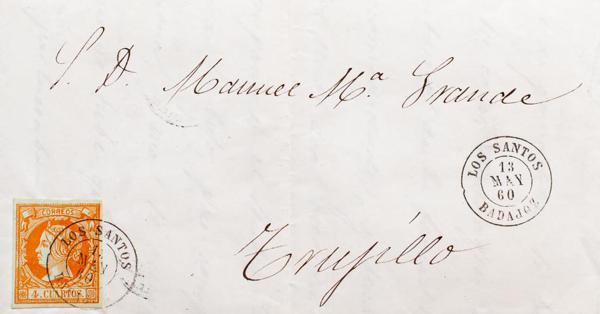 S. D. Manuel Mª Grande
LOS SANTOS
13
MAY
60
BADAJOZ
CORREOS
LOS SANTOS
4 CUARTOS
Trujillo